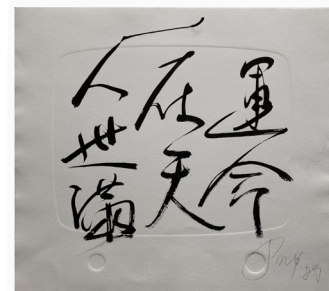 運命
在天
人世滿
89